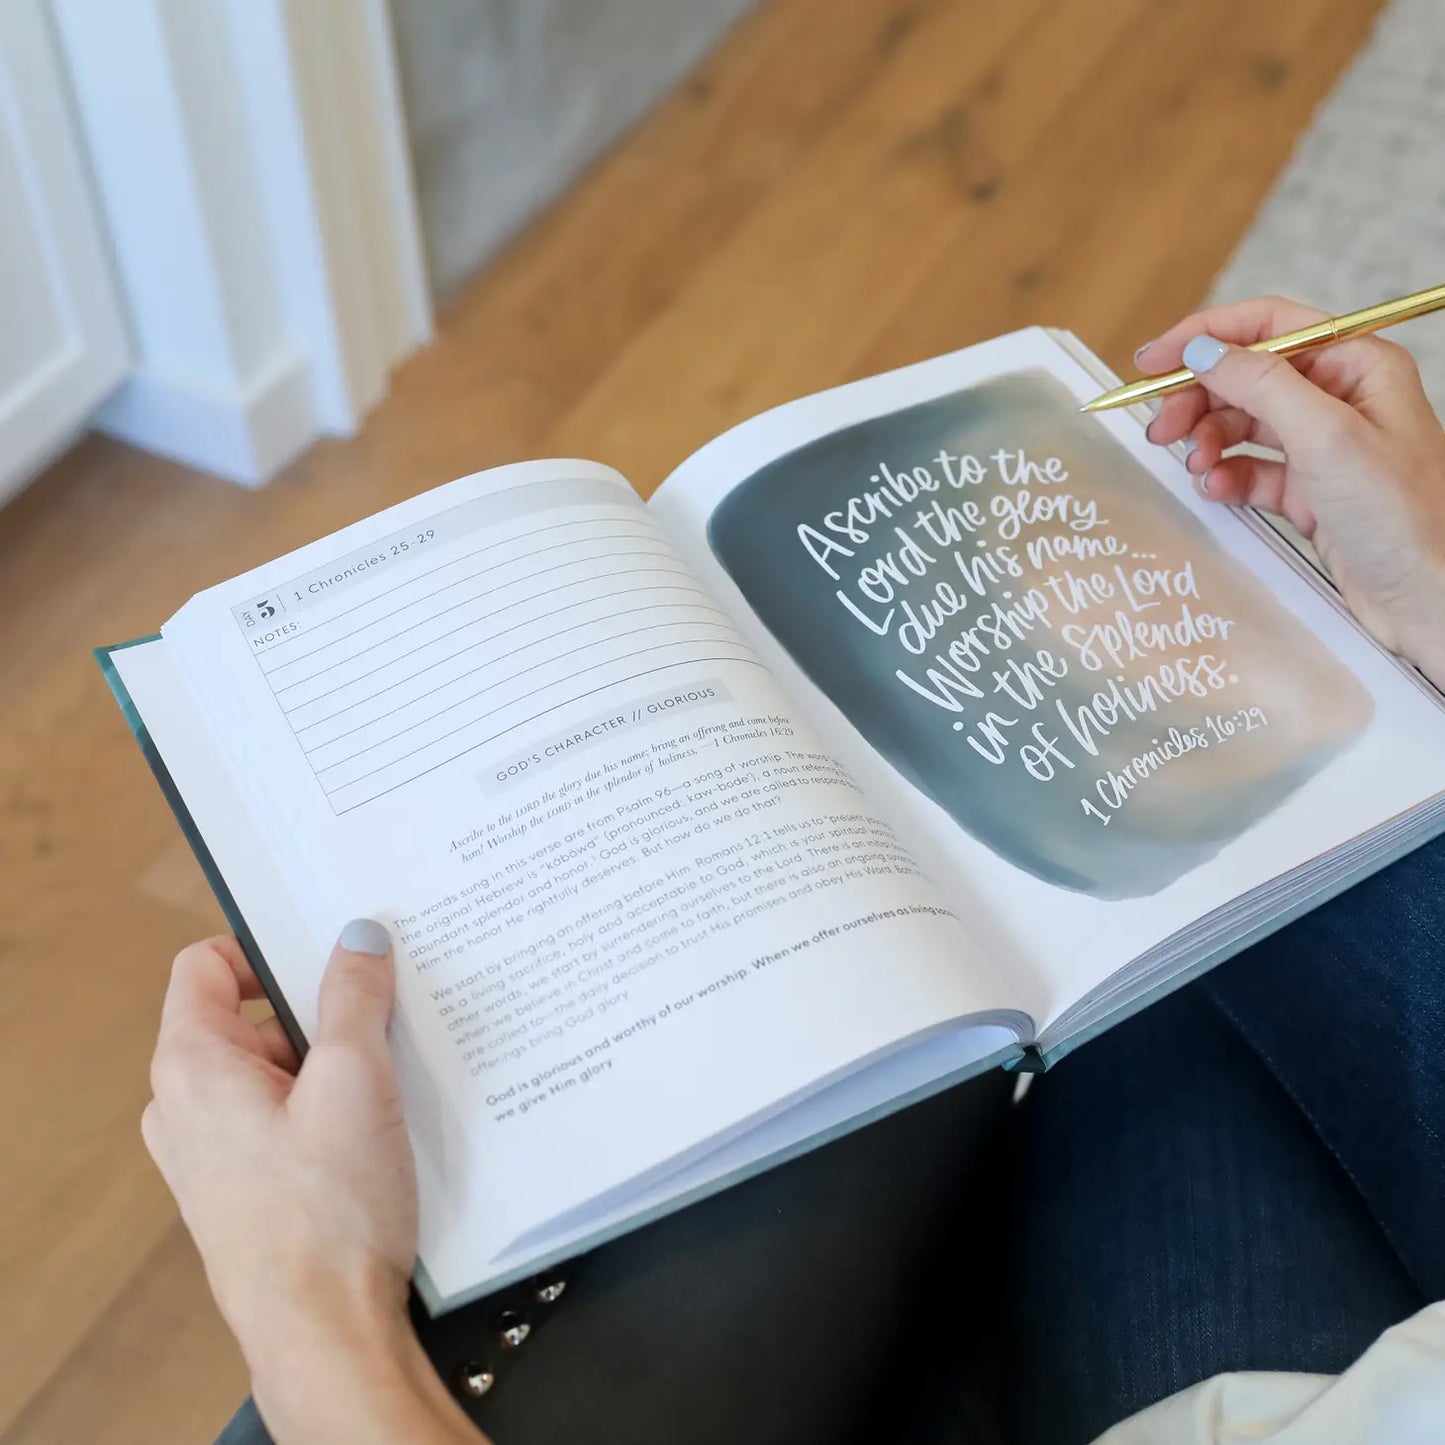 DAY 5 | 1 Chronicles 25-29
NOTES:
GOD'S CHARACTER // GLORIOUS
Ascribe to the LORD the glory due his name; bring an offering and come before
him! Worship the LORD in the splendor of holiness. — 1 Chronicles 16:29
The words sung in this verse are from Psalm 96—a song of worship. The word
the original Hebrew is "kâbôwd" (pronounced: kaw-bode'), a noun referring to
abundant splendor and honor.¹ God is glorious, and we are called to respond by
Him the honor He rightfully deserves. But how do we do that?
We start by bringing an offering before Him. Romans 12:1 tells us to "present your
as a living sacrifice, holy and acceptable to God, which is your spiritual
other words, we start by surrendering ourselves to the Lord. There is an initial
when we believe in Christ and come to faith, but there is also an ongoing
are called to—the daily decision to trust His promises and obey His Word. Both
offerings bring God glory
God is glorious and worthy of our worship. When we offer ourselves as living
we give Him glory
Ascribe to the
Lord the glory
due his name...
Worship the Lord
in the splendor
of holiness.
1 Chronicles 16:29